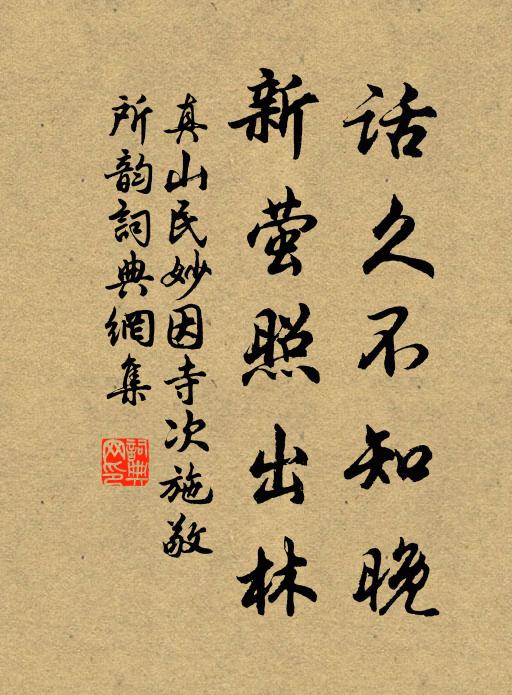 话久不知晚
新萤照出林
真山民妙因寺次施敬
所韵詞典網集
詞典
网印